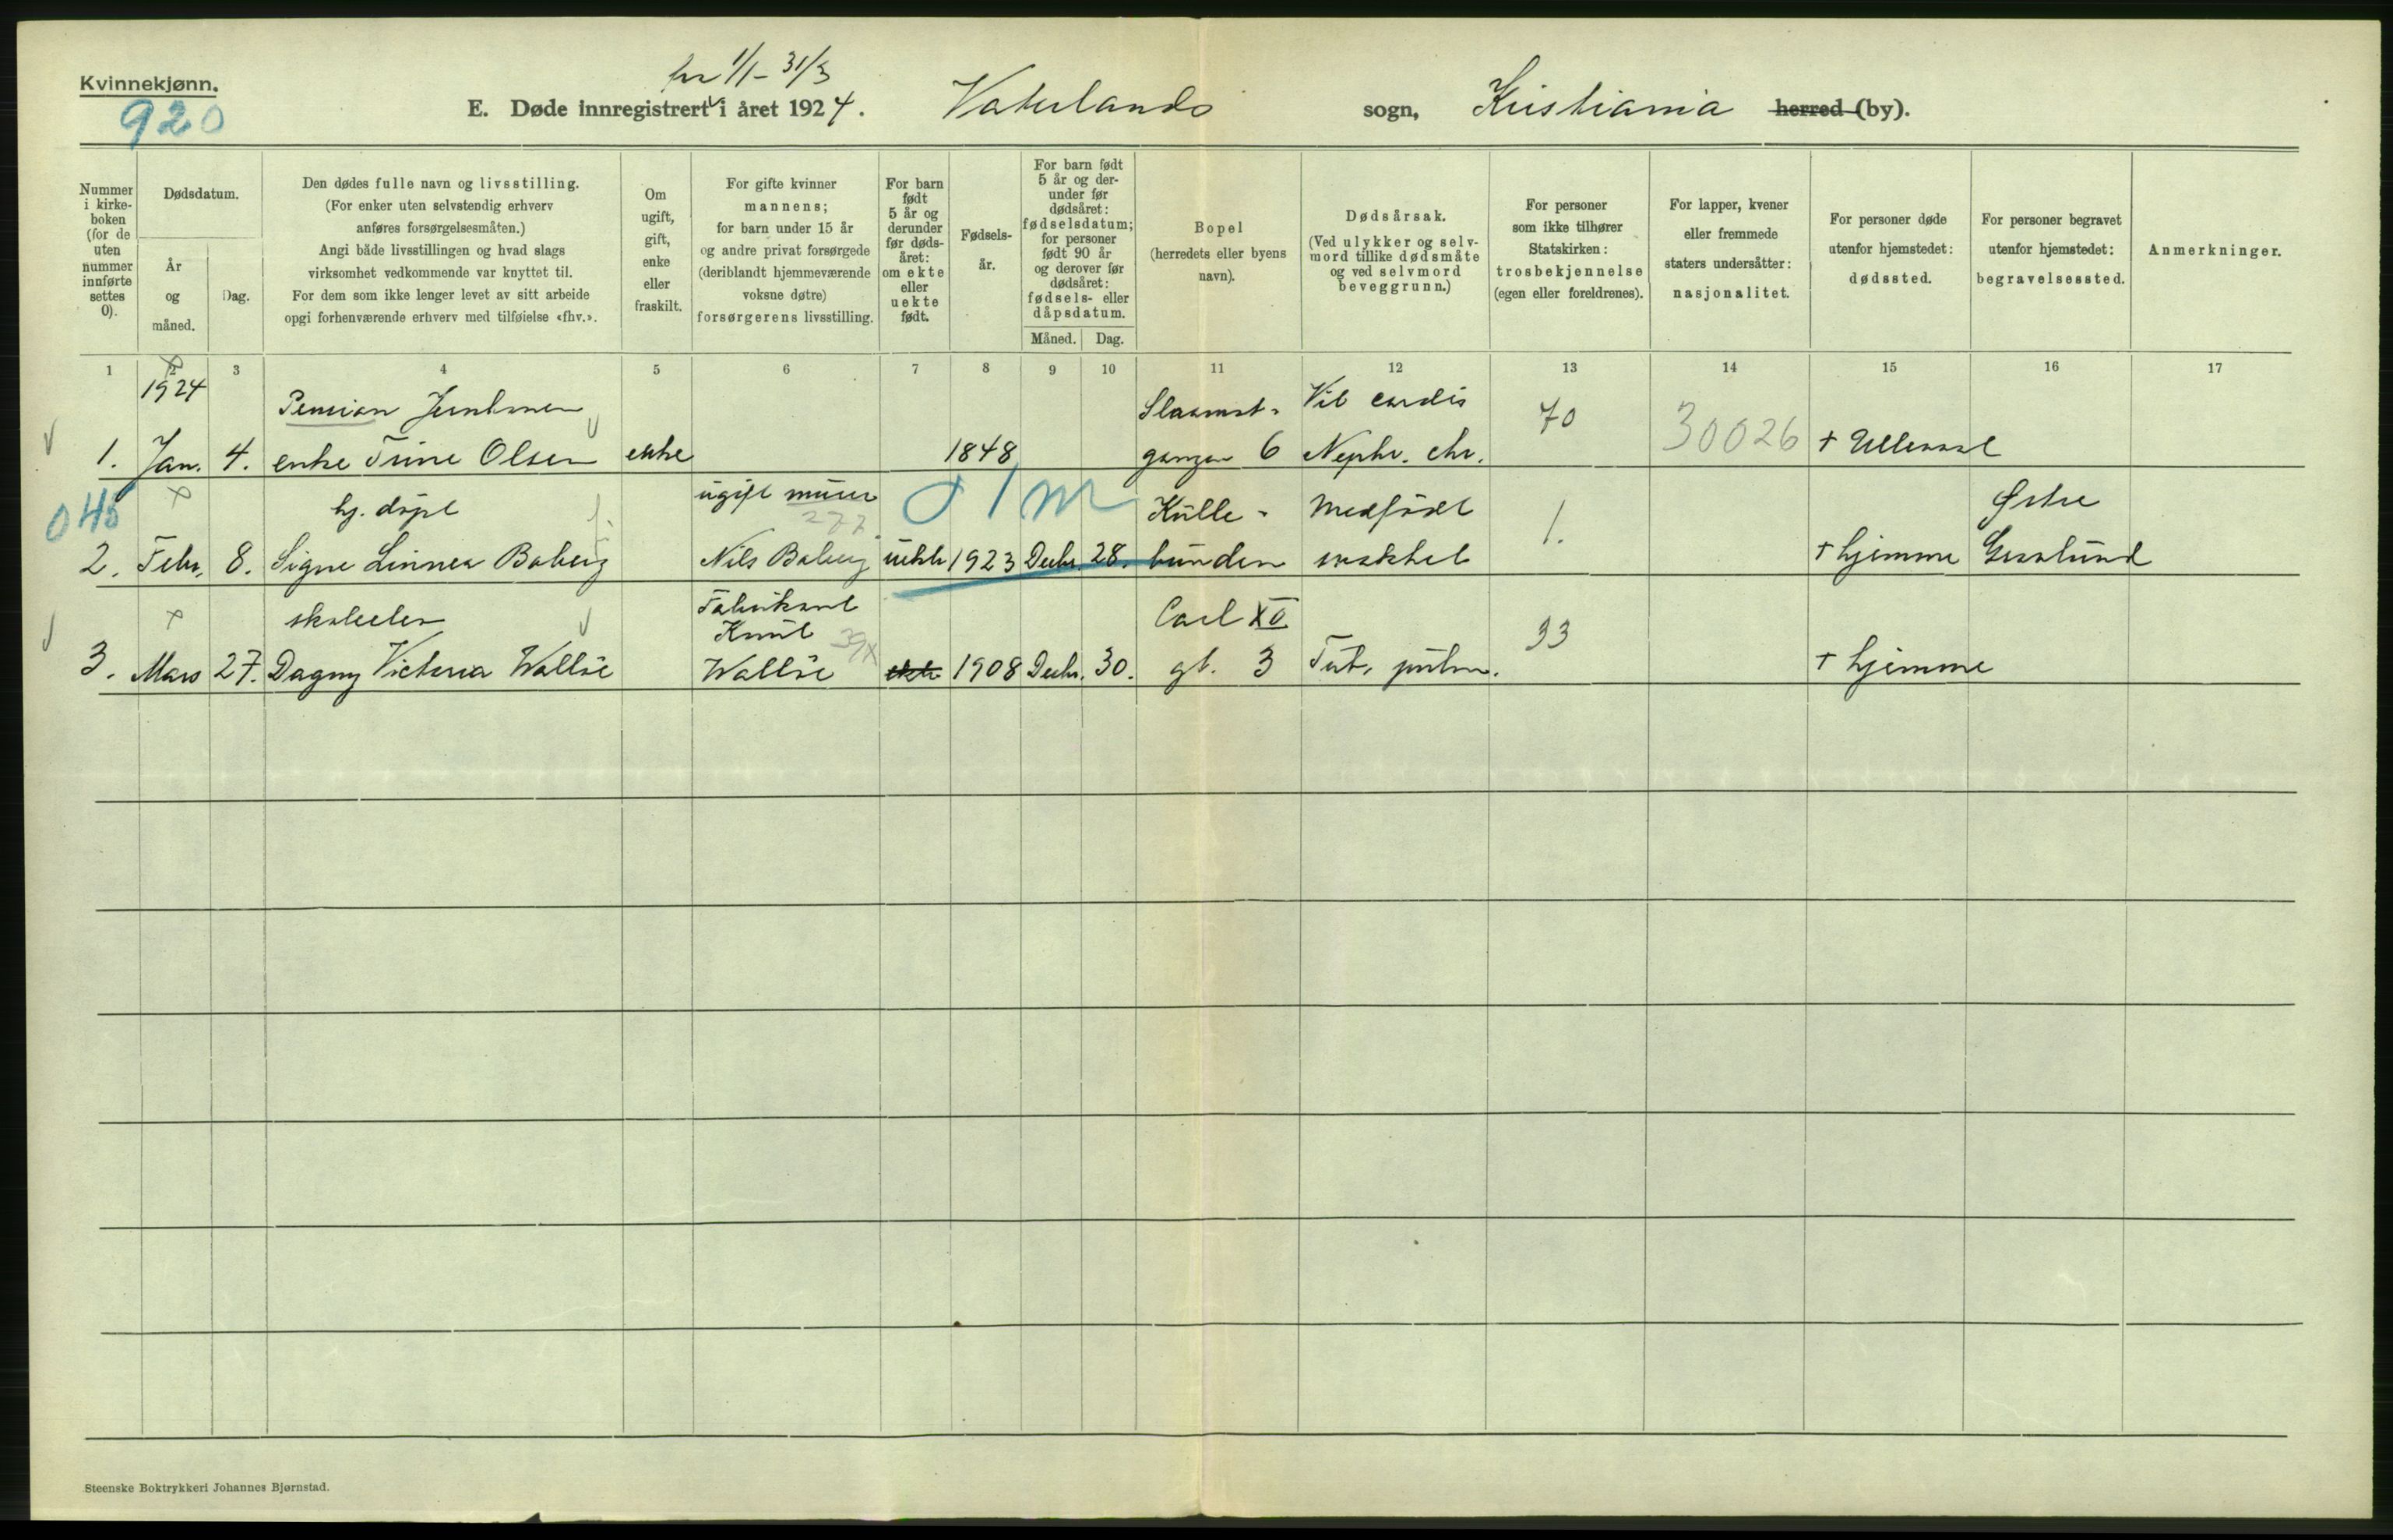 Kvinnekjønn.
920
fra 1/1 - 31/3
E. Døde innregistrert i året 1924. Vaterlands sogn, Kristiania herred (by).
Nummer i kirkeboken (for de uten nummer innførte settes 0).
Dødsdatum.
År og måned.
Dag.
Den dødes fulle navn og livsstilling.
(For enker uten selvstendig erhverv
anføres forsørgelsesmåten.)
Angi både livsstillingen og hvad slags
virksomhet vedkommende var knyttet til.
For dem som ikke lenger levet av sitt arbeide
opgi forhenværende erhverv med tilføielse «fhv.».
Om ugift, gift, enke eller fraskilt.
For gifte kvinner
mannens;
for barn under 15 år
og andre privat forsørgede
(deriblandt hjemmeværende
voksne døtre)
forsørgerens livsstilling.
For barn født 5 år og derunder før dødsåret: om ekte eller uekte født.
Fødselsår.
For barn født 5 år og derunder før dødsåret: fødselsdatum; for personer født 90 år og derover før dødsåret: fødsels- eller dåpsdatum.
Måned. Dag.
Bopel
(herredets eller byens
navn).
Dødsårsak.
(Ved ulykker og selvmord tillike dødsmåte
og ved selvmord
beveggrunn.)
For personer
som ikke tilhører
Statskirken:
trosbekjennelse
(egen eller foreldrenes).
For lapper, kvener
eller fremmede
staters undersåtter:
nasjonalitet.
For personer døde
utenfor hjemstedet:
dødssted.
For personer begravet
utenfor hjemstedet:
begravelsessted.
Anmerkninger.
1 2 3 4 5 6 7 8 9 10 11 12 13 14 15 16 17
1924
Pension Slaamot- Vit cordis 70 30026
1. Jan. 4. enke Trine Olsen enke 1848 gangen 6 Nephr. chr. + Ullevaal
045
hj. døpt ugift murer 277 Kulle- Medfødt 1. Østre
2. Febr. 8. Signe Linnea Boberg Nils Boberg uekte 1923 Decbr. 28. bunden svakhet + hjemme Grorlund
skoleelev Fabrikant Knut Carl XII 33
3. Mars 27. Dagny Victoria Wallöe Wallöe ekte 1908 Decbr. 30. gt. 3 Tub. pulm. + hjemme
Steenske Boktrykkeri Johannes Bjørnstad.